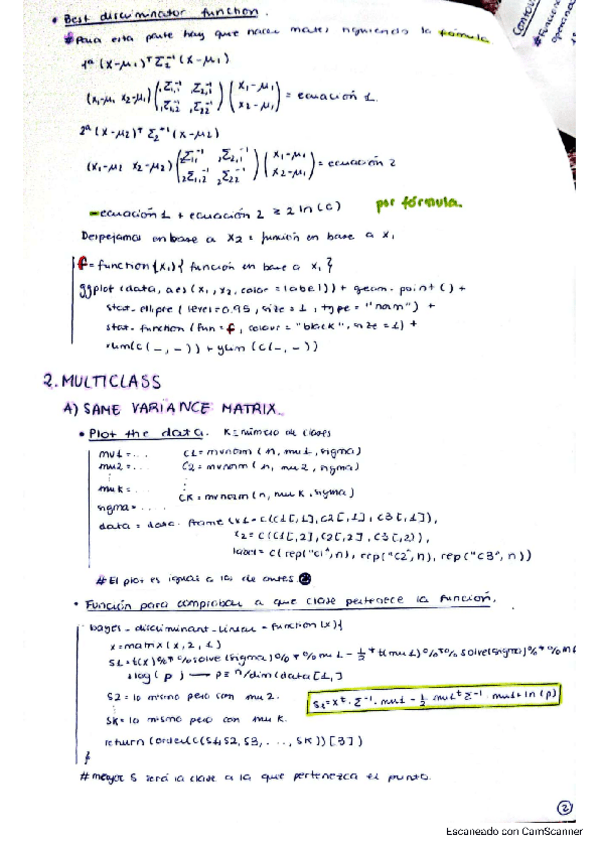 • Best discriminator function.
# Para esta parte hay que hacer mates siguiendo la fórmula
1ª (x-μ1)ᵀ Σ2⁻¹ (x-μ1)
(x1-μ1 x2-μ1) (1Σ1,1⁻¹ , 1Σ2,1⁻¹ / 1Σ1,2⁻¹ , 1Σ22⁻¹) (x1-μ1 / x2-μ1) = ecuación 1.
2ª (x-μ2)ᵀ Σ2⁻¹ (x-μ2)
(x1-μ2 x2-μ2) (2Σ1,1⁻¹ , 2Σ2,1⁻¹ / 2Σ1,2⁻¹ , 2Σ22⁻¹) (x1-μ2 / x2-μ2) = ecuación 2
-ecuación 1 + ecuación 2 ≥ 2 ln(c) por fórmula.
Despejamos en base a x2 = función en base a x1
f = function(x1){ función en base a x1 }
ggplot (data, aes (x1, x2, color = label)) + geom_point () +
stat_ellipse (level=0.95, size = 1, type = "norm") +
stat_function (fun = f, colour = "black", size = 1) +
xlim(c(-,-)) + ylim (c(-,-))
2. MULTICLASS
A) SAME VARIANCE MATRIX.
• Plot the data. K = número de clases
mu1 = ... C1 = mvnorm (n, mu1, sigma)
mu2 = ... C2 = mvnorm (n, mu2, sigma)
muk = ... CK = mvnorm (n, muK, sigma)
sigma = ....
data = data.frame (x1 = c(C1[,1], C2[,1], C3[,1]),
x2 = c(C1[,2], C2[,2], C3[,2]),
label = c(rep("C1", n), rep("C2", n), rep("C3", n))
# El plot es igual a los de antes.
• Función para comprobar a que clase pertenece la función.
bayes_discriminant_linear = function(x){
x = matrix (x, 2, 1)
S1 = t(x) %*% solve (sigma) %*% mu1 - 1/2 * t(mu1) %*% solve(sigma) %*% m
+ log (p) → p = n/dim(data[1,]
S2 = lo mismo pero con mu2. S1 = xᵗ · Σ⁻¹ · mu1 - 1/2 mu1ᵗ Σ⁻¹ · mu1 + ln (p)
SK = lo mismo pero con muk.
return (order(c(S1, S2, S3, ..., SK))[3])
}
# mayor S será la clase a la que pertenezca el punto.
2
Escaneado con CamScanner